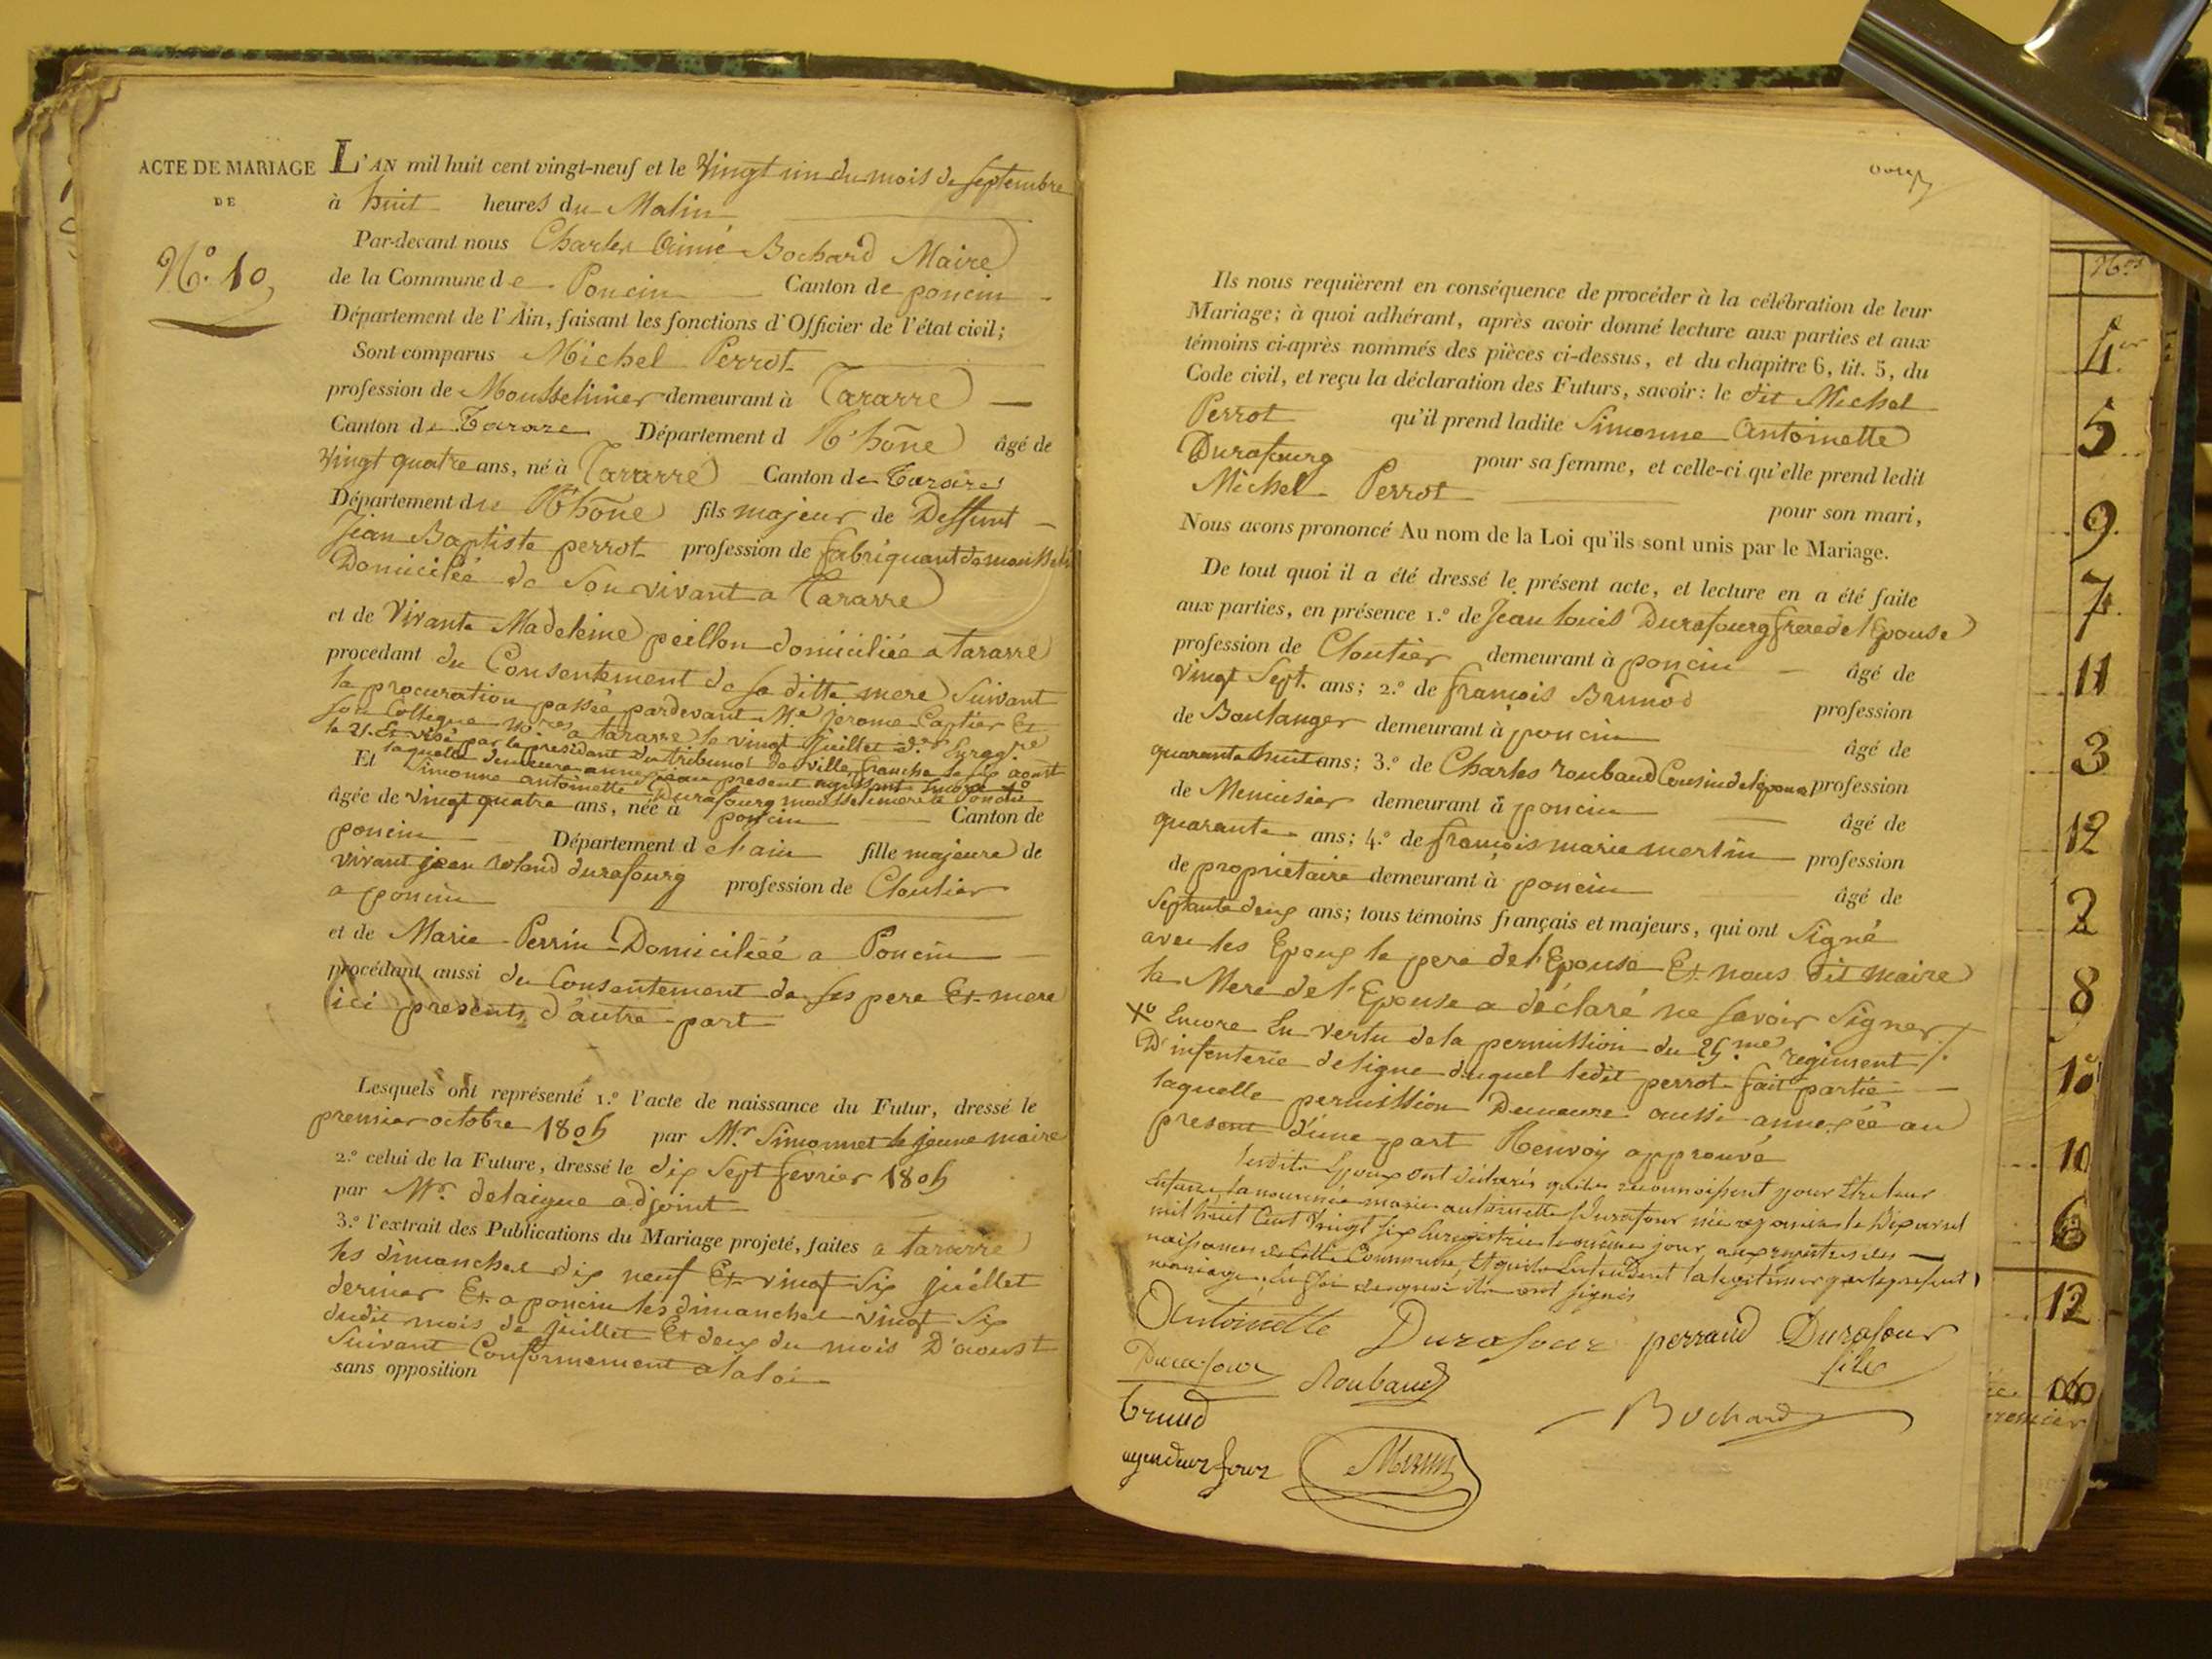 ACTE DE MARIAGE
DE
N.o 10,
L'AN mil huit cent vingt-neuf et le Vingt un du mois de septembre
à huit heures du Matin
Par-devant nous Charles Aimé Bochard Maire
de la Commune de Poncin Canton de poncin
Département de l'Ain, faisant les fonctions d'Officier de l'état civil;
Sont comparus Michel Perrot
profession de Mousselinier demeurant à Tararre
Canton de Tarare Département d Rhône âgé de
Vingt quatre ans, né à Tararre Canton de Tarare
Département du Rhône fils majeur de Deffunt
Jean Baptiste perrot profession de fabriquant de mousseli
Domicilié de Son vivant a Tararre
et de Vivante Madeleine peillon domiciliée a tararre
procédant du Consentement de sa ditte mere Suivant
la procuration passée pardevant Me jerome Captier Et
son Collegue No.res a tararre le vingt juillet d.er Enreg.ré
le 21. Et visé par le president du tribunal de ville franche le six aoust
laquelle demeure annexée au present agissant Encore Xo
Et Simonne antoinette Durafourg mousseliniere a Poncin
âgée de vingt quatre ans, née à poncin Canton de
poncin Département de l'ain fille majeure de
vivant jean roland durafourg profession de Cloutier
a poncin
et de Marie Perrin Domiciliéé a Poncin
procédant aussi du Consentement de ses pere Et mere
ici presents d'autre part
Lesquels ont représenté 1.o l'acte de naissance du Futur, dressé le
premier octobre 1805 par Mr. Simonnet le jeune maire
2.o celui de la Future, dressé le dix Sept fevrier 1805
par Mr. delaigue adjoint
3.o l'extrait des Publications du Mariage projeté, faites a tararre
les dimanches dix neuf Et vingt Six juillet
dernier Et a poncin les dimanches vingt Six
dudit mois de juillet Et deux du mois D'aoust
Suivant Conformement a la loi
sans opposition
Ils nous requièrent en conséquence de procéder à la célébration de leur
Mariage; à quoi adhérant, après avoir donné lecture aux parties et aux
témoins ci-après nommés des pièces ci-dessus, et du chapitre 6, tit. 5, du
Code civil, et reçu la déclaration des Futurs, savoir: le dit Michel
Perrot qu'il prend ladite Simonne Antoinette
Durafourg pour sa femme, et celle-ci qu'elle prend ledit
Michel Perrot pour son mari,
Nous avons prononcé Au nom de la Loi qu'ils sont unis par le Mariage.
De tout quoi il a été dressé le présent acte, et lecture en a été faite
aux parties, en présence 1.o de Jean louis Durafourg frere de l'Epouse
profession de Cloutier demeurant à poncin âgé de
vingt Sept. ans; 2.o de françois Brunod profession
de Boulanger demeurant à poncin âgé de
quarante huit ans; 3.o de Charles roubaud Cousin de l'épouse profession
de Menuisier demeurant à poncin âgé de
quarante ans; 4.o de françois marie merlin profession
de propriétaire demeurant à poncin âgé de
Septante deux ans; tous témoins français et majeurs, qui ont Signé
avec les Epoux le pere de l'Epouse Et nous dit maire
la Mere de l'Epouse a déclaré ne savoir Signer
Xo Encore En vertu de la permission du 25.me regiment
D'infenterie de ligne duquel ledit perrot fait partie
laquelle permission Demeure aussi annexéé au
present d'une part Renvoy approuvé
lesdits Epoux ont déclarés qu'ils reconnoissent pour Etre leur
Enfant la nommée marie antoinette Durafour née a poncin le dix avril
mil huit Cent Vingt six Enregistrée le même jour aux registres des
naissances de Cette Commune, Et qu'ils Entendent la légitimer par le present
mariage, En foi de quoi ils ont signés
Antoinette Durafour perraud Durafour
fils
Durafour Roubaud
Brunod Bochard
Merlin
Nos
4
5
9
7
11
3
12
2
8
10
10
6
12
100